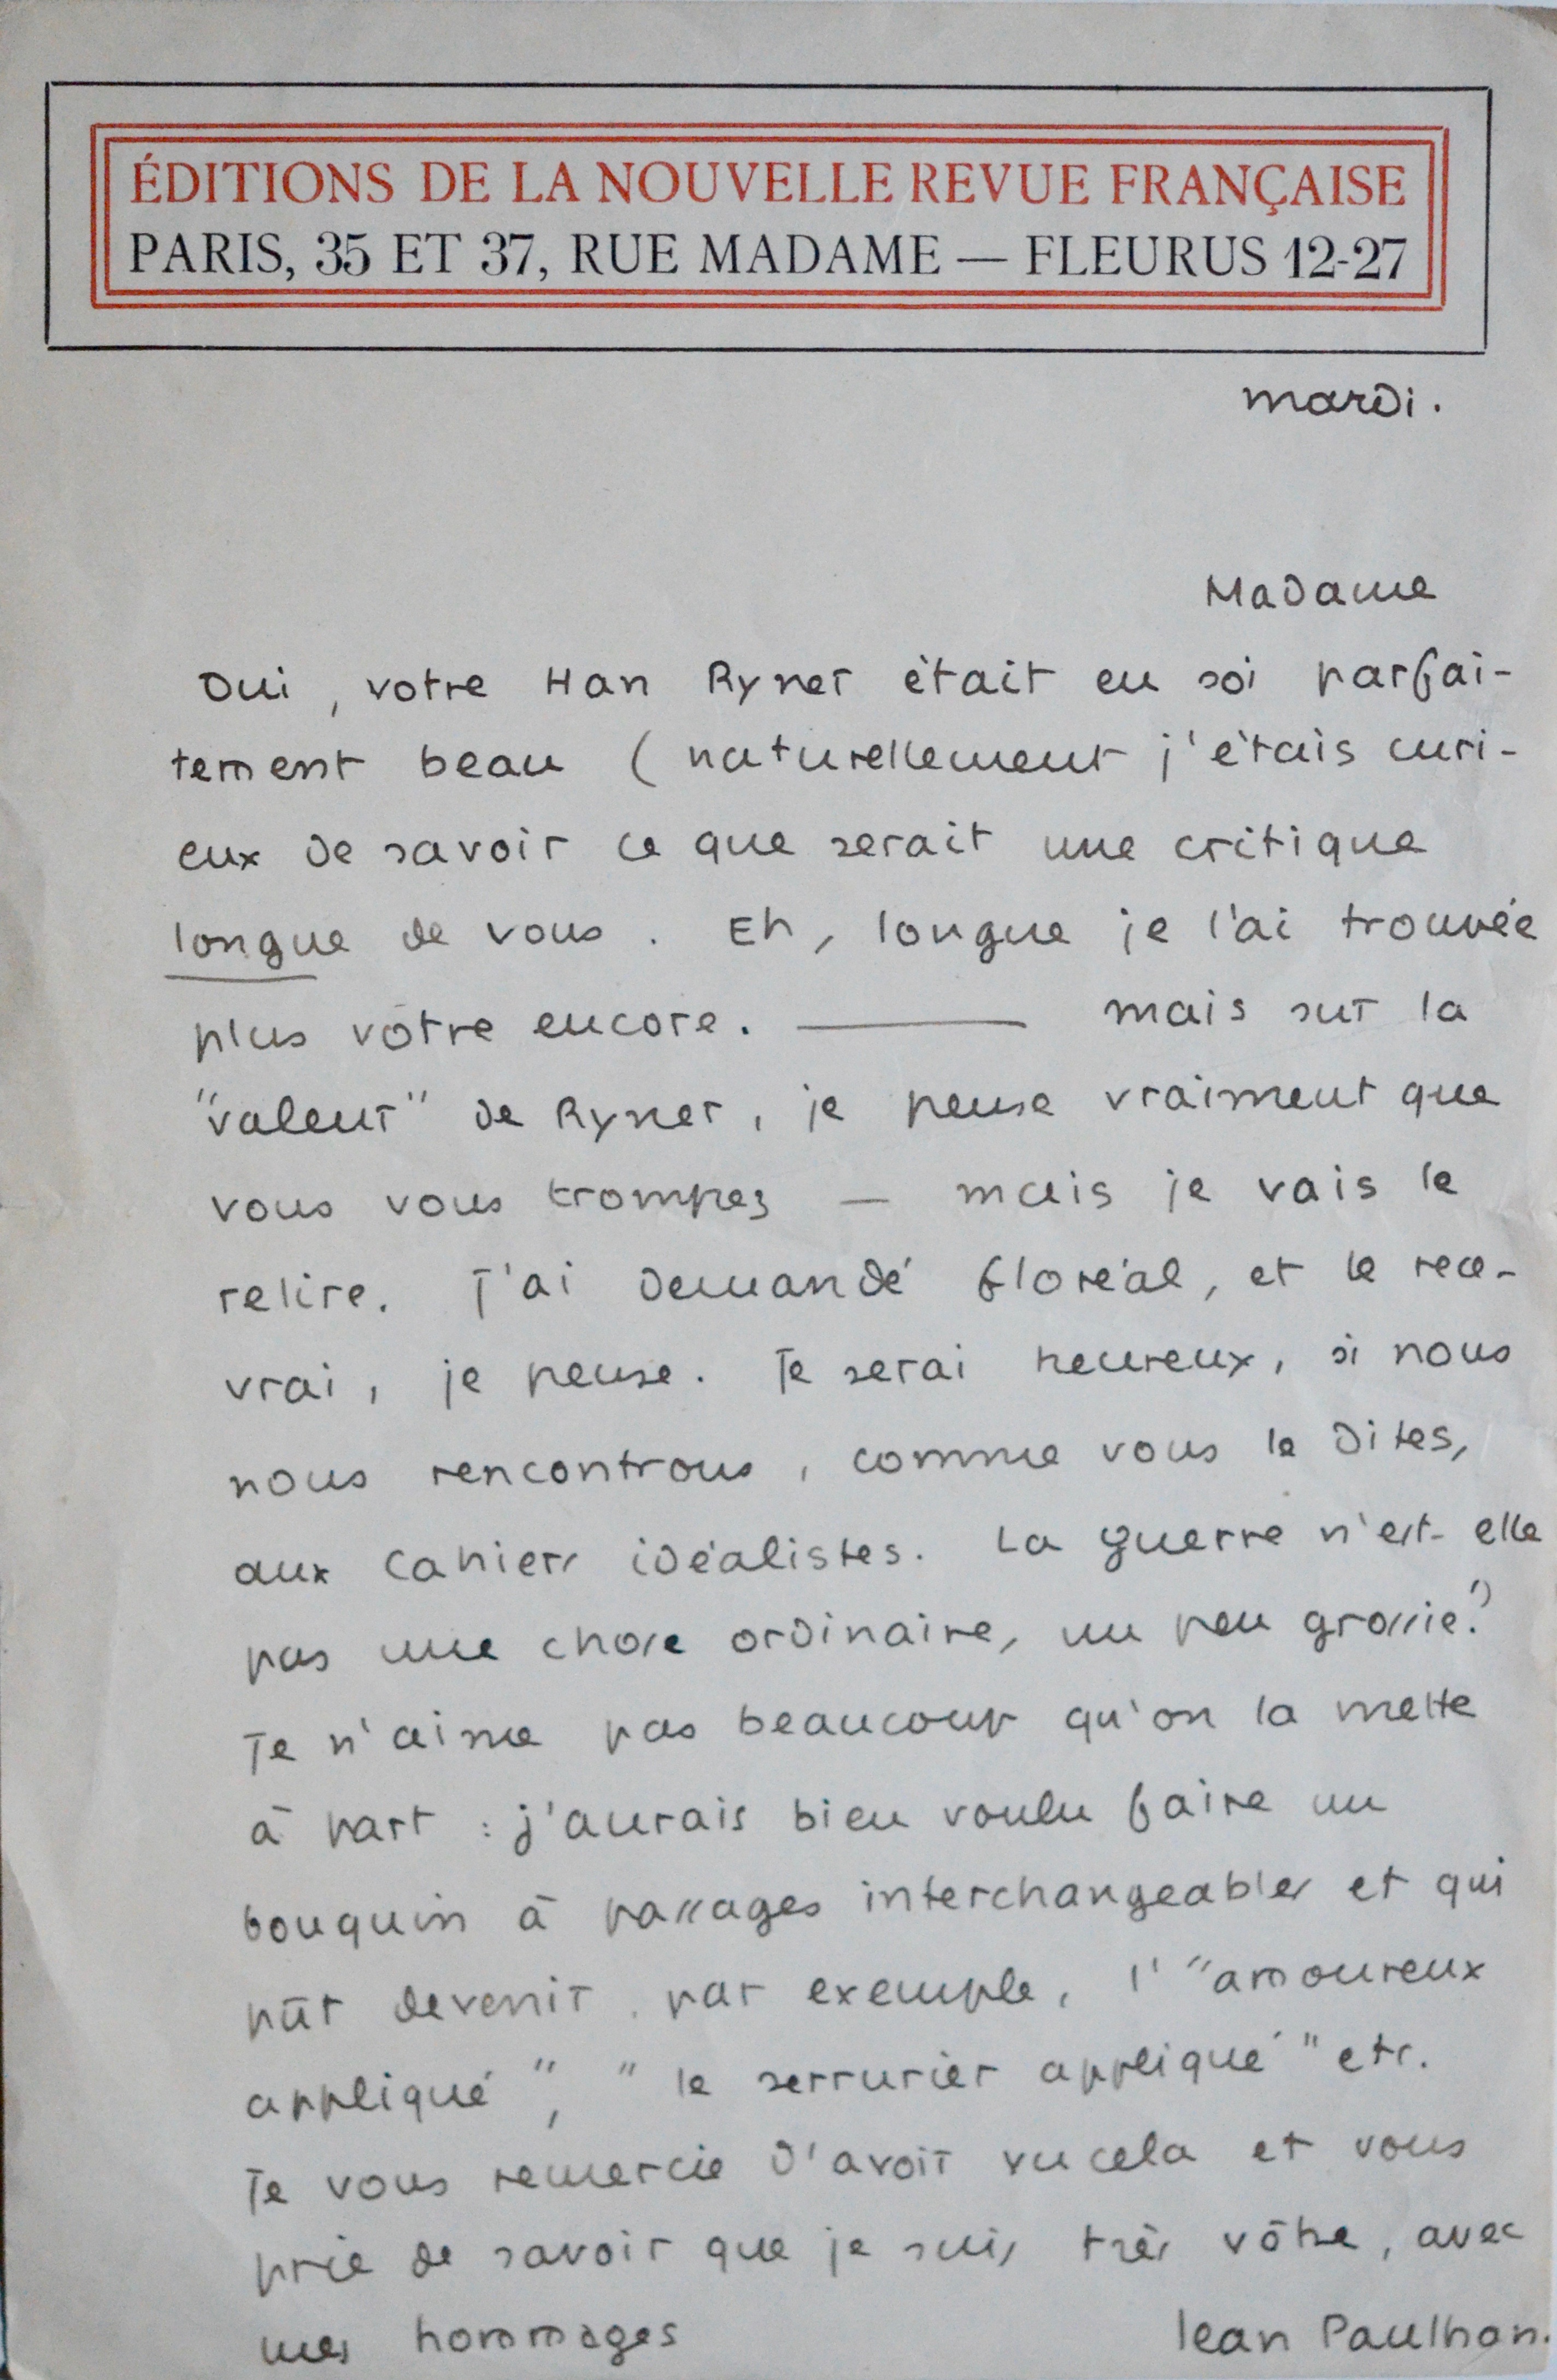 ÉDITIONS DE LA NOUVELLE REVUE FRANÇAISE
PARIS, 35 ET 37, RUE MADAME — FLEURUS 12-27
mardi.
Madame
Oui, votre Han Ryner était en soi parfai-
tement beau (naturellement j'étais curi-
eux de savoir ce que serait une critique
longue de vous. Eh, longue je l'ai trouvée
plus vôtre encore. ——— mais sur la
"valeur" de Ryner, je pense vraiment que
vous vous trompez — mais je vais le
relire. J'ai demandé floréal, et le rece-
vrai, je pense. Je serai heureux, si nous
nous rencontrons, comme vous le dites,
aux Cahiers idéalistes. La guerre n'est-elle
pas une chose ordinaire, un peu grossie?
Je n'aime pas beaucoup qu'on la mette
à part : j'aurais bien voulu faire un
bouquin à passages interchangeables et qui
pût devenir, par exemple, l'"amoureux
appliqué", "le serrurier appliqué" etc.
Je vous remercie d'avoir vu cela et vous
prie de savoir que je suis très vôtre, avec
mes hommages
Jean Paulhan.